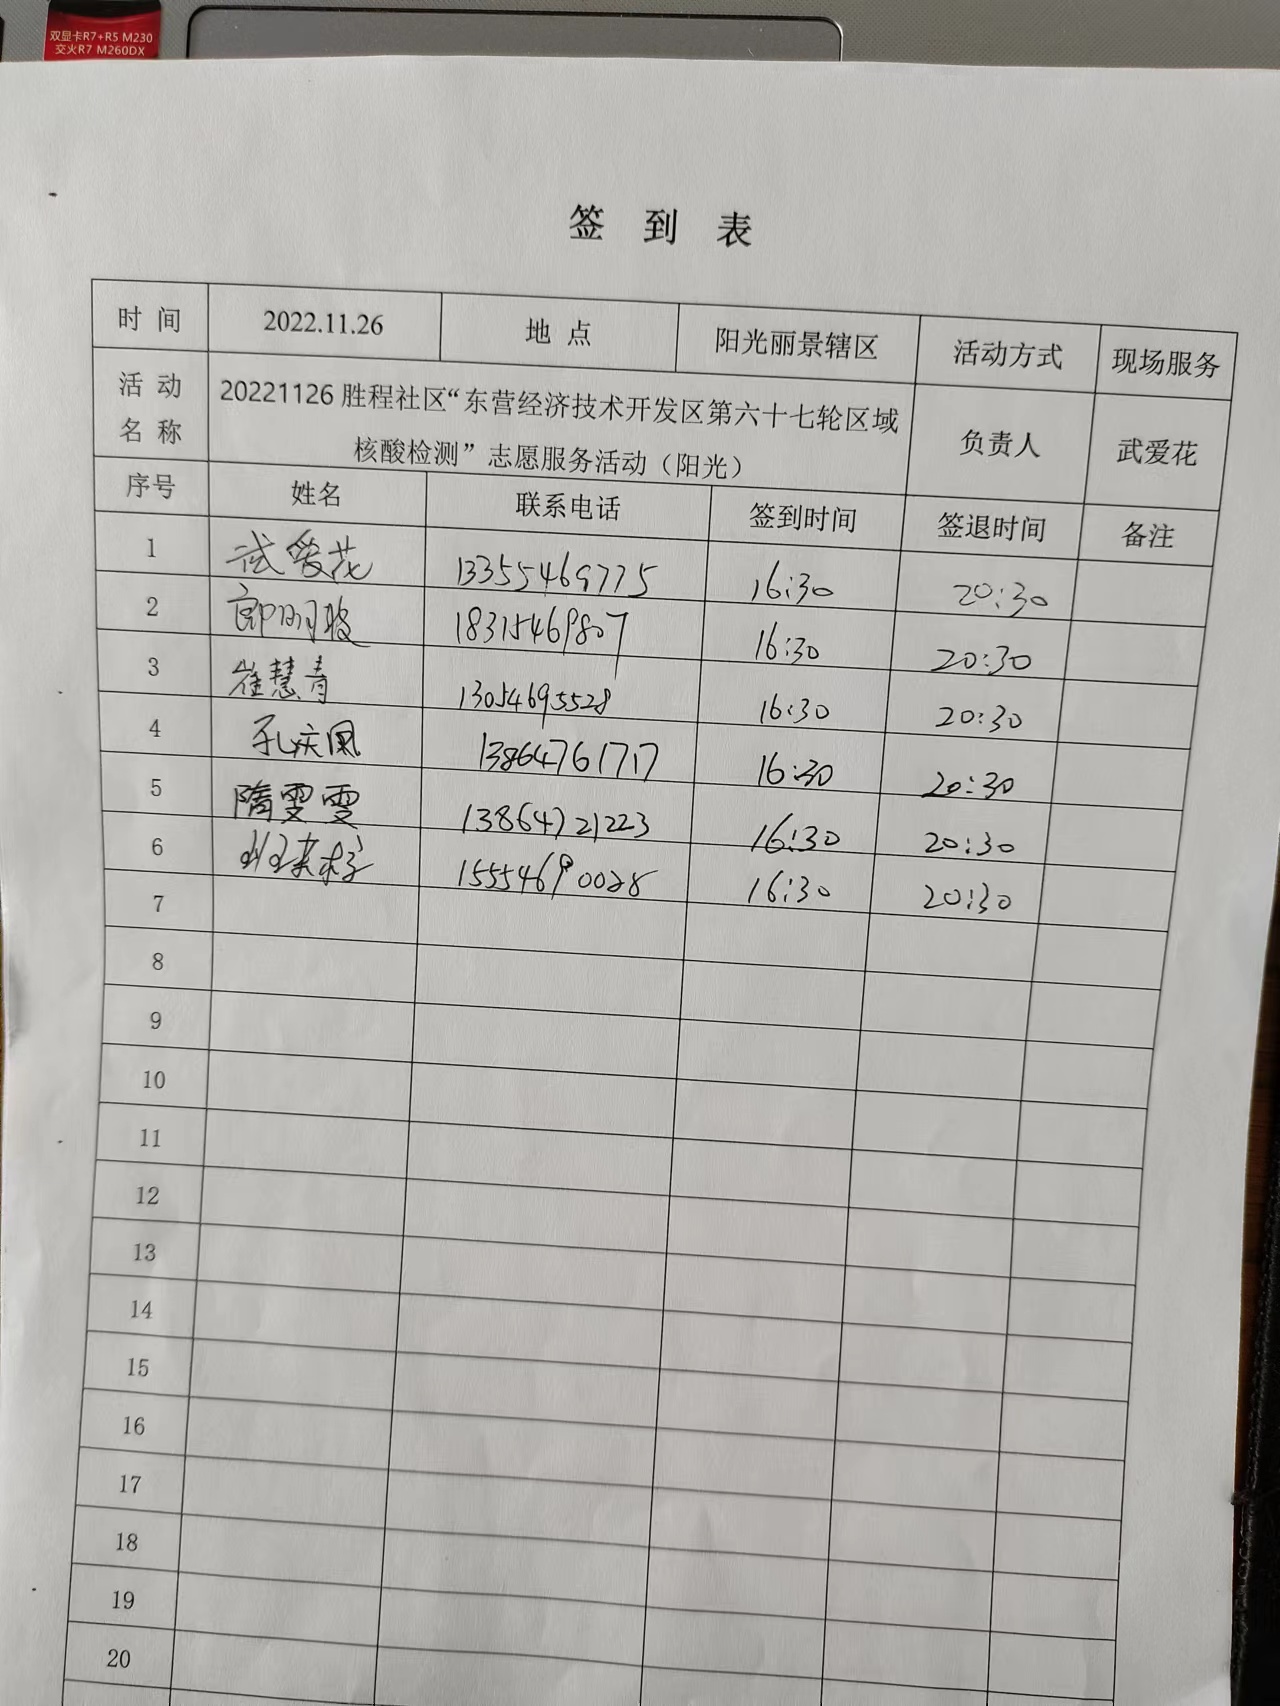 双显卡R7+R5 M230
交火R7 M260DX
签到表
时间 2022.11.26 地点 阳光丽景辖区 活动方式 现场服务
活动名称 20221126胜程社区“东营经济技术开发区第六十七轮区域
核酸检测”志愿服务活动（阳光） 负责人 武爱花
序号 姓名 联系电话 签到时间 签退时间 备注
1 武爱花 13355469775 16:30 20:30
2 郎明波 18315469807 16:30 20:30
3 崔慧青 13054695528 16:30 20:30
4 孔庆凤 13864761717 16:30 20:30
5 隋雯雯 13864721223 16:30 20:30
6 15554690028 16:30 20:30
7
8
9
10
11
12
13
14
15
16
17
18
19
20